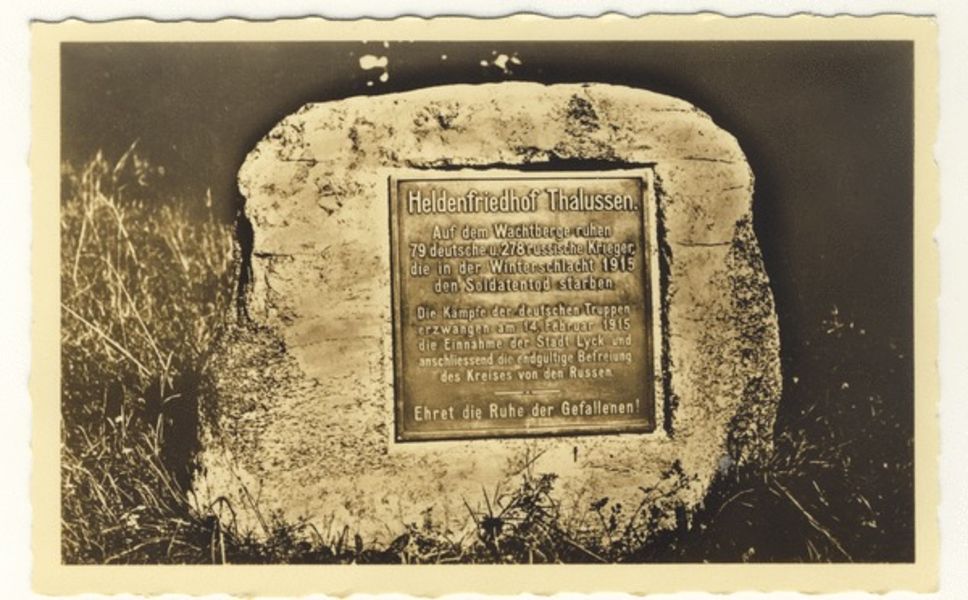 Heldenfriedhof Thalussen.
Auf dem Wachtberge ruhen
79 deutsche u. 278 russische Krieger,
die in der Winterschlacht 1915
den Soldatentod starben
Die Kämpfe der deutschen Truppen
erzwangen am 14. Februar 1915
die Einnahme der Stadt Lyck und
anschliessend die endgültige Befreiung
des Kreises von den Russen.
Ehret die Ruhe der Gefallenen!